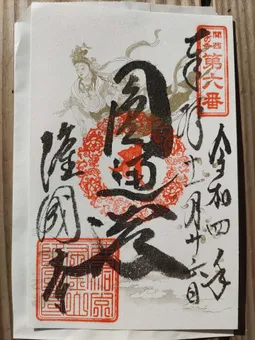 関西
花の寺
第六番
奉拝
令和四年
月廿六日
圓通殿
隆國寺